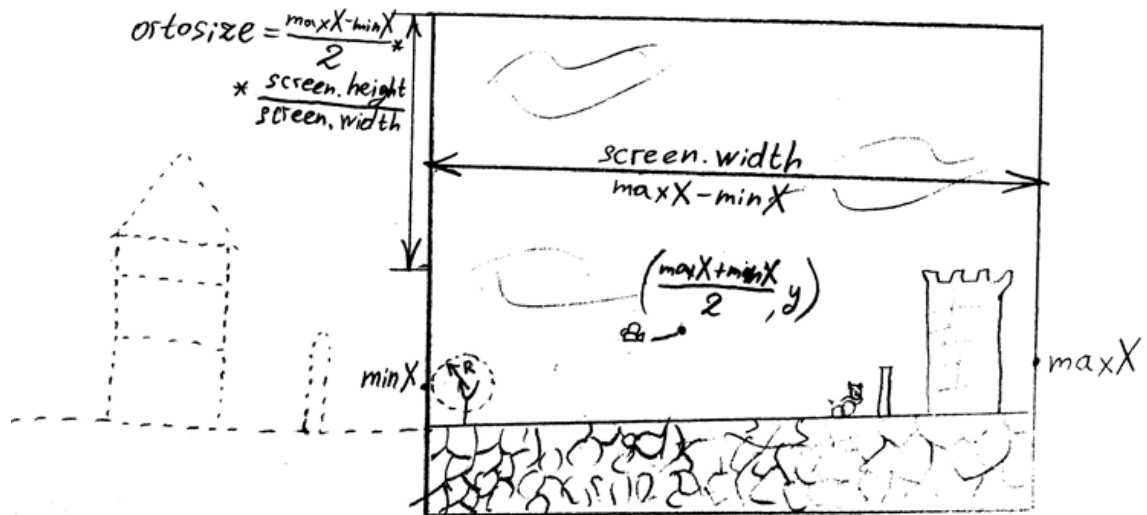 ortosize = (maxX-minX)/2 *
* screen.height/screen.width
screen.width
maxX-minX
((maxX+minX)/2, y)
R
minX
maxX